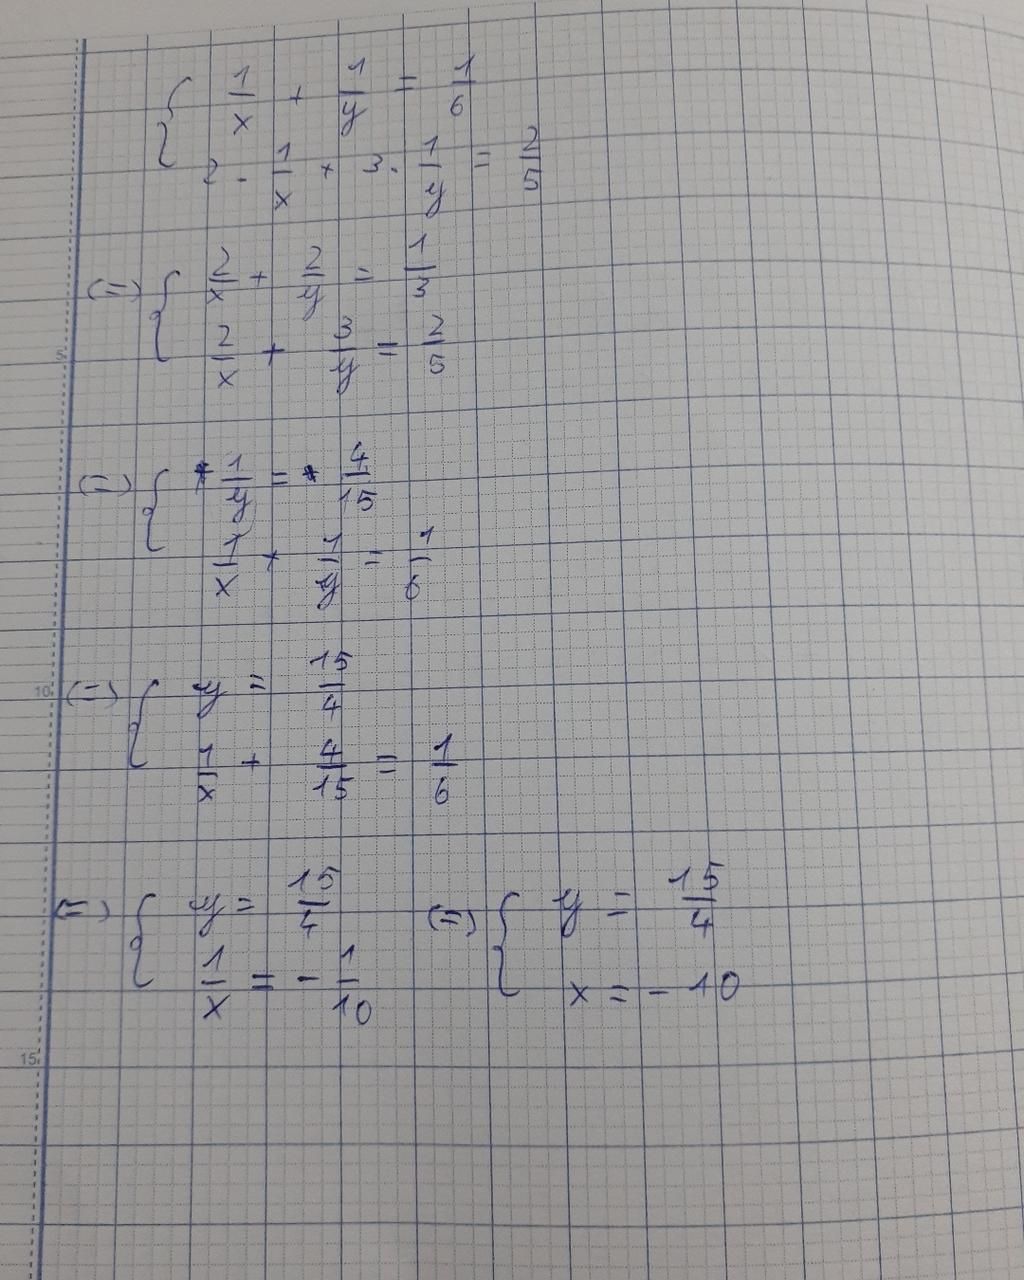 { 1/x + 1/y = 1/6
2 . 1/x + 3. 1/y = 2/5
(=) { 2/x + 2/y = 1/3
5
2/x + 3/y = 2/5
(=) { 1/y = 4/15
1/x + 1/y = 1/6
10 (=) { y = 15/4
1/x + 4/15 = 1/6
(=) { y = 15/4 (=) { y = 15/4
1/x = - 1/10 x = - 10
15